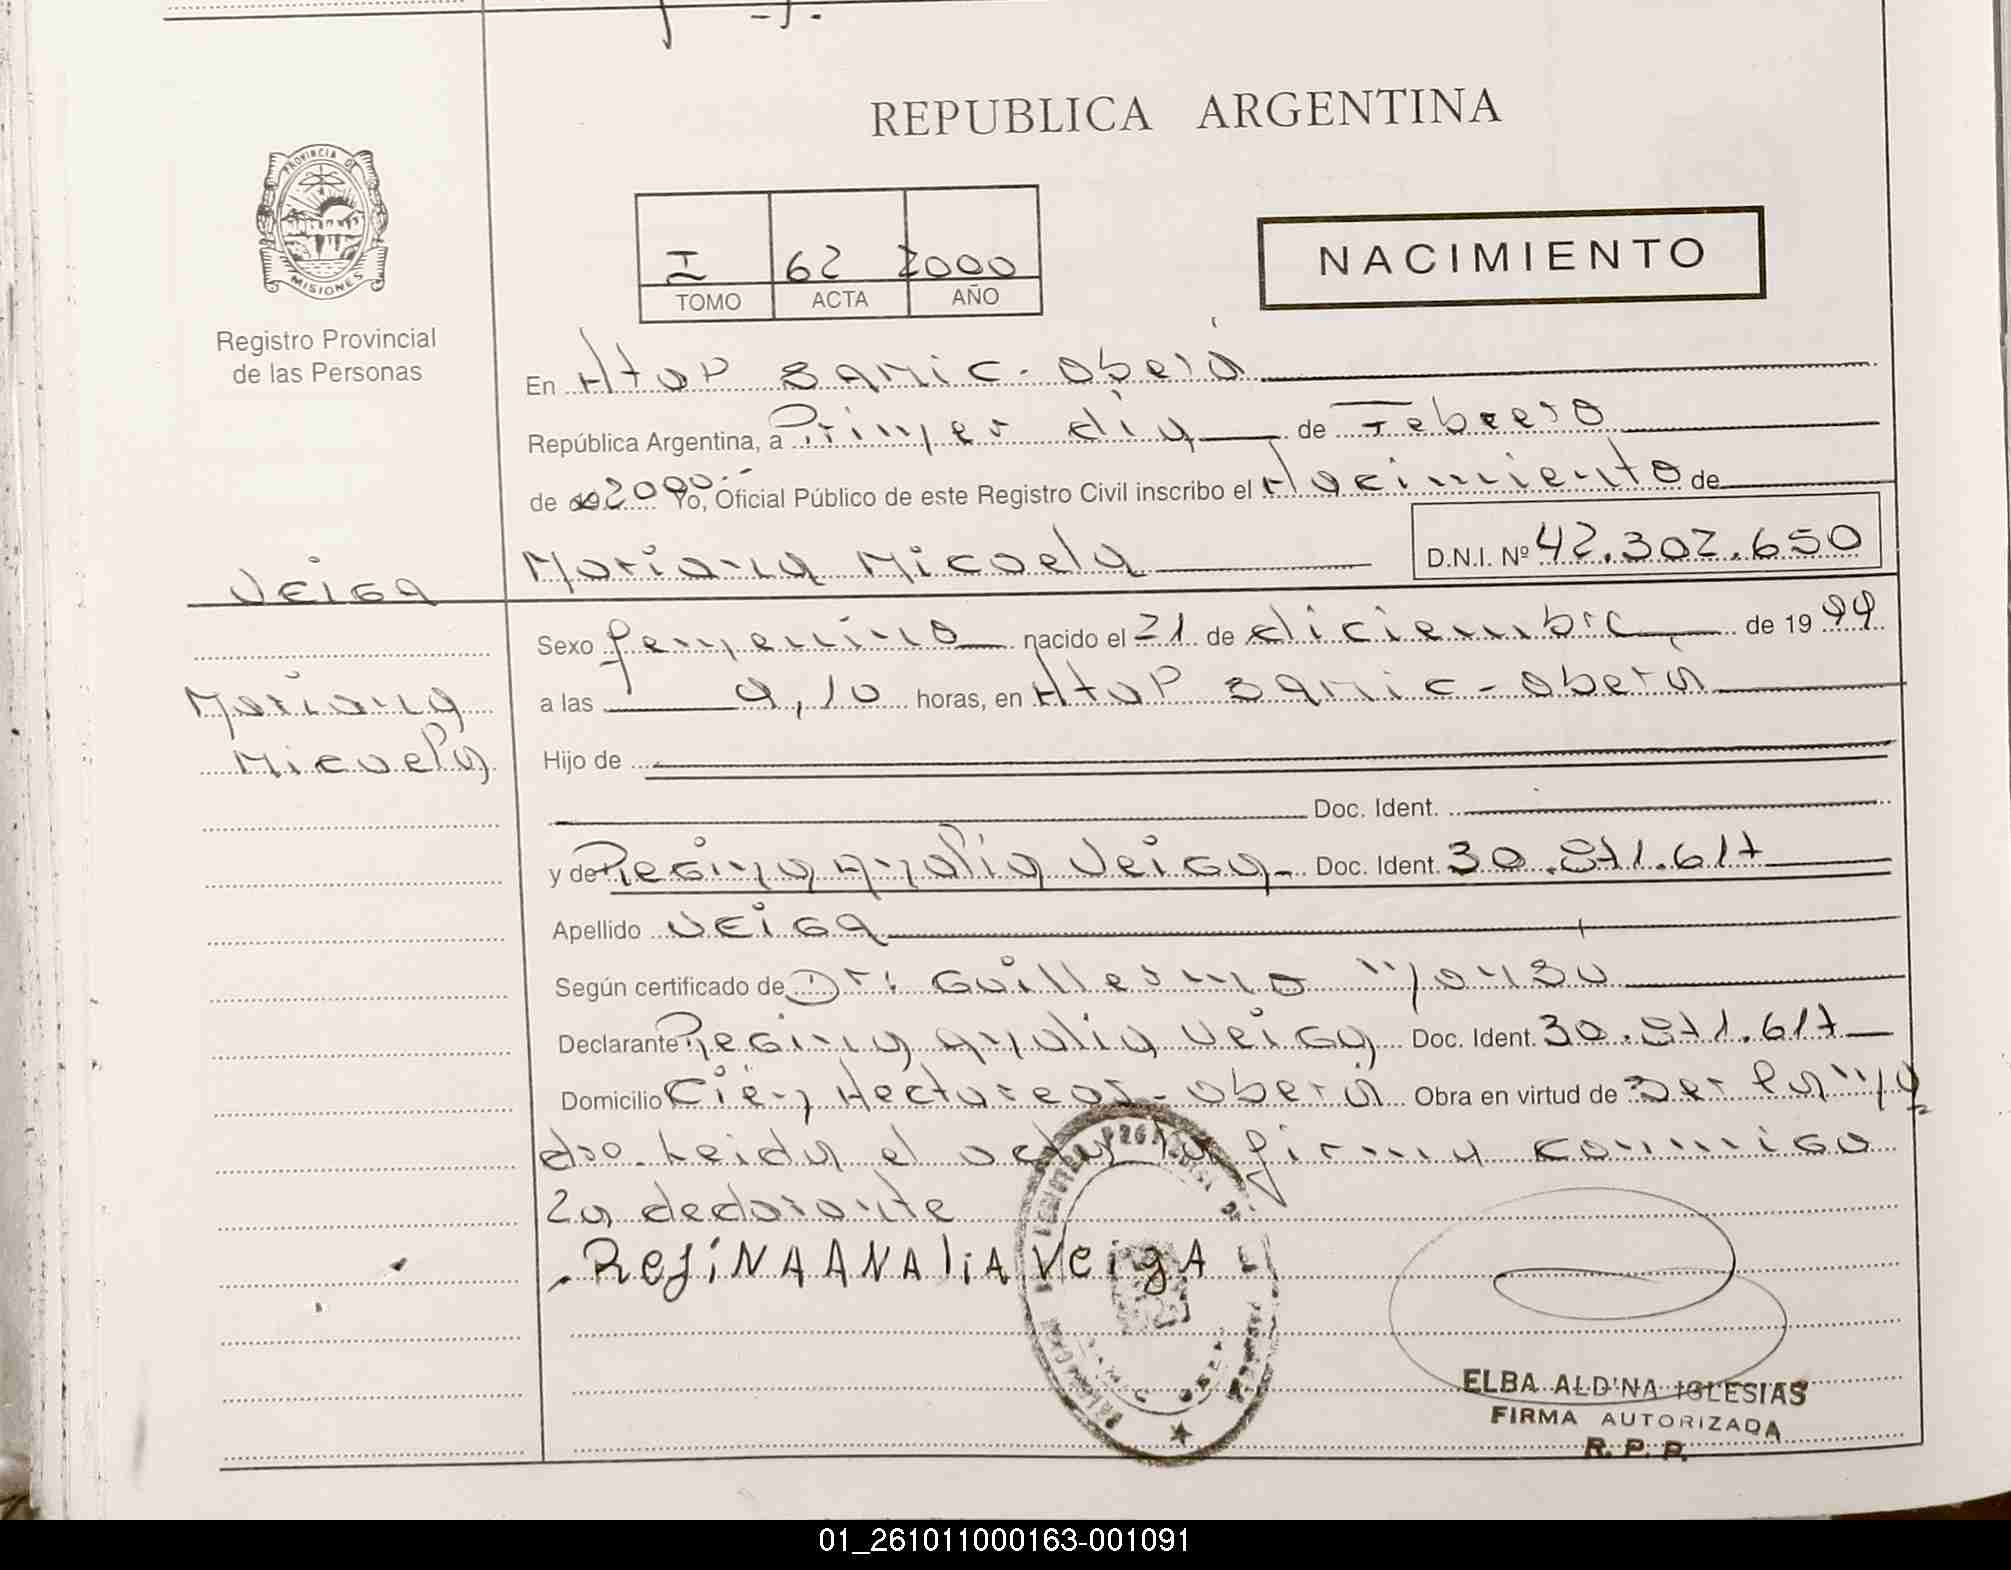 REPUBLICA ARGENTINA
PROVINCIA DE
MISIONES
Registro Provincial
de las Personas
I 62 2000
TOMO ACTA AÑO
NACIMIENTO
En Htap Samic - Oberá
República Argentina, a Primer día de Febrero
de 19 2000 Yo, Oficial Público de este Registro Civil inscribo el Nacimiento de
Veiga
Mariana Micaela D.N.I. Nº 42.302.650
Sexo femenino nacido el 21 de diciembre de 19 99
a las 9,10 horas, en Htap Samic - Oberá
Mariana
Micaela
Hijo de
Doc. Ident.
y de Regina Analia Veiga Doc. Ident. 30.871.617
Apellido VEiGA
Según certificado de Dr: Guillermo
Declarante Regina Analia Veiga Doc. Ident. 30.871.617
Domicilio Cien Hectareas - Oberá Obra en virtud de Ser la ma
dre. Leida el acta la firma conmigo
La declarante
ReJiNA ANAliA VeigA
ELBA ALDINA IGLESIAS
FIRMA AUTORIZADA
R. P. P.
01_261011000163-001091